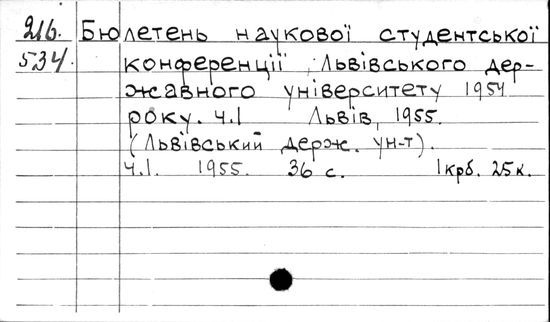 216. Бюлетень наукової студентської
534. конференції Львівського дер-
жавного університету 1954
року. ч.1 Львів, 1955.
(Львівський держ. ун-т).
ч.1. 1955. 36 с. 1 крб. 25 к.